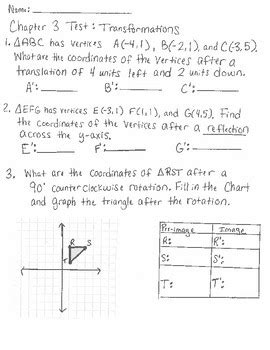 Name:
Chapter 3 Test: Transformations
1. △ABC has vertices A(-4,1), B(-2,1), and C(-3,5).
What are the coordinates of the vertices after a
translation of 4 units left and 2 units down.
A': B': C':
2. △EFG has vertices E(-3,1) F(1,1), and G(4,5). Find
the coordinates of the vertices after a reflection
across the y-axis.
E': F': G':
3. What are the coordinates of △RST after a
90° counterclockwise rotation. Fill in the Chart
and graph the triangle after the rotation.
R S
Pre-image Image
R: R':
S: S':
T: T':